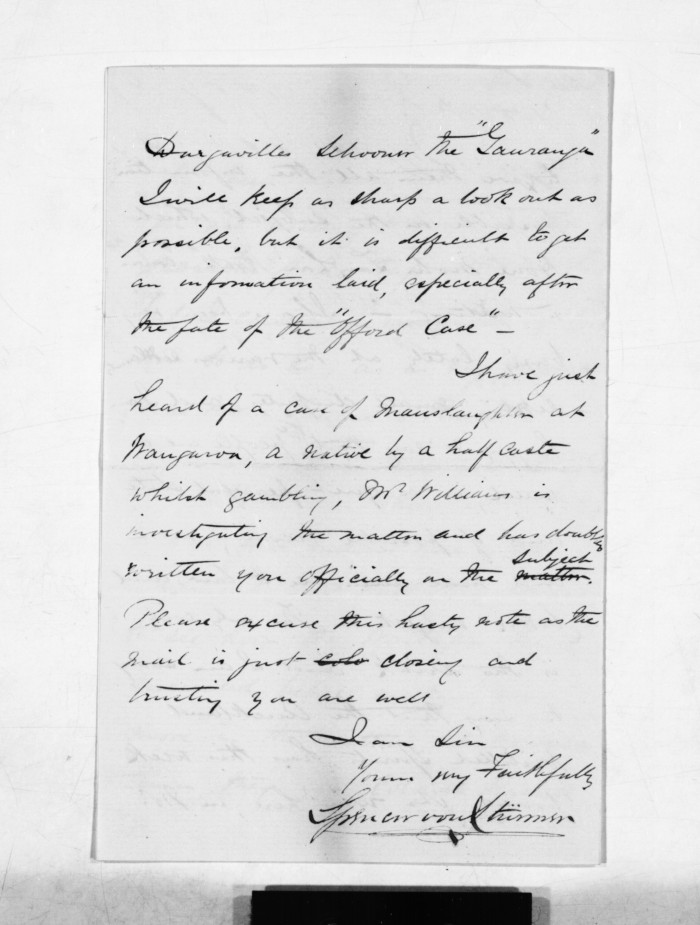 Dargavilles Schooner the "Gauranga"
I will keep as sharp a look out as
possible, but it is difficult to get
an information laid, especially after
the fate of the "Offord Case" –
I have just
heard of a case of Manslaughter at
Wangaroa, a native by a half caste
whilst gambling, Mr Williams is
investigating the matter and has doubtless
written you officially on the subject matter.
Please excuse this hasty note as the
mail is just colo closing and
trusting you are well
I am Sir
Yours very Faithfully
Spencer von Stürmer